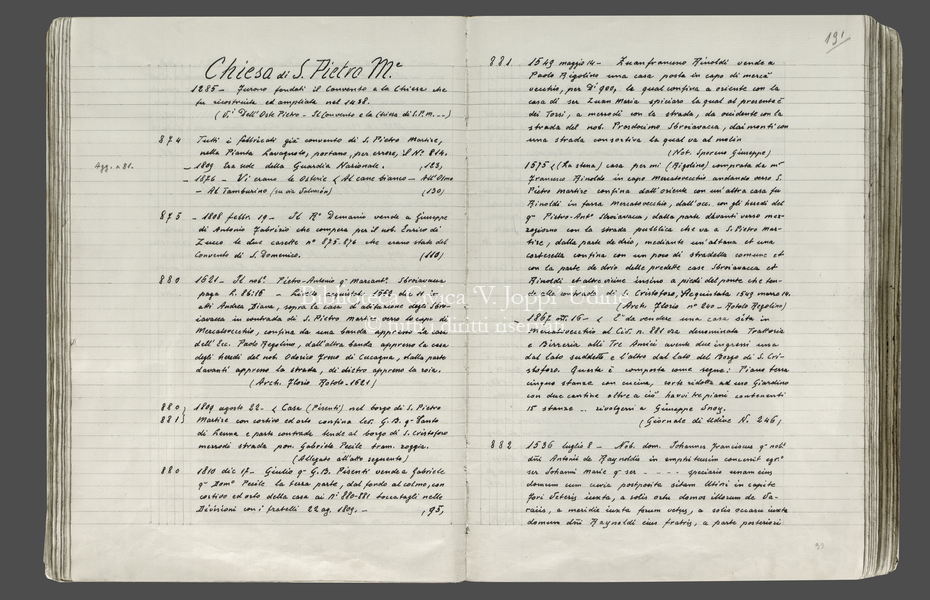 Chiesa di S. Pietro M.e
1285 - Furono fondati il Convento e la Chiesa che
fu ricostruita ed ampliata nel 1438.
(V.i Dell'Oste Pietro - Il Convento e la Chiesa di S.P.M. ---)
874 Tutti i fabbricati già convento di S. Pietro Martire,
nella Pianta Lavagnolo, portano, per errore, il N° 814.
Agg. a 81. - 1809 Era sede della Guardia Nazionale. (123)
- 1876 - Vi erano le Osterie Al cane bianco - All'Olmo
- Al Tamburino (130)
875 - 1808 febbr. 19 - Il R° Demanio vende a Giuseppe
di Antonio Fabrizio che compera per il nob. Enrico di
Zucco le due casette n° 875-876 che erano state del
Convento di S. Domenico. (110)
880 1621 - Il nob. Pietro-Antonio q. Sbroiavacca
paga L. 86:16 -
Andrea sopra la casa d'abitazione degli Sbro-
iavacca in contrada di S. Pietro Martire verso lo capo di
Mercatovecchio, confina da una banda appresso la casa
dell'Ecc. Paolo Rigolino, dall'altra banda appresso la casa
degli heredi del nob. Oderico di Cucagna, dalla parte
davanti appresso la strada, di dietro appresso la roia.
(Arch. Florio Rotolo - 1621)
880 1809 agosto 22 - Casa (Pisenti) nel borgo di S. Pietro
881 Martire con cortivo ed orto confina lev. G.B. q. Santo
di Lenna e parte contrada tende al borgo di S. Cristoforo
mezzodì strada pon. Gabriele Pecile tram. roggia.
(Allegato all'atto seguente)
880 1810 dic 17 - Giulio q. G.B. Pisenti vende a Gabriele
q. Dom.o Pecile la terza parte, dal fondo al colmo, con
cortivo ed orto della casa ai N.i 880-881 toccatagli nelle
Divisioni con i fratelli 22 ag. 1809. - (95)
191
881 1549 maggio 14 - Zuanfrancesco Rinoldi vende a
Paolo Rigolino una casa posta in capo di mercà
vecchio, per D.i 900, la qual confina a oriente con la
casa di ser Zuan Maria spiciaro la qual al presente è
dei Torsi, a mezzodì con la strada, da ocidente con la
strada del nob. Prosdocimo Sbroiavacca, dai monti con
una strada consortiva la qual va al molin
(Not. Sporeno Giuseppe)
1575 (La stena) casa per mi (Rigolino) comprata de m.r
Francesco Rinoldo in capo Mercatovecchio andando verso S.
Pietro Martire confina dall'oriente con un'altra casa fu
Rinoldi in faza Mercatovecchio, dall'occ. con gli heredi del
q. Pietro-Ant.o Sbroiavacca, dalla parte davanti verso mez-
zogiorno con la strada pubblica che va a S. Pietro Mar-
tire, dalla parte de drio, mediante un'altana et una
cortesella confina con un poco di stradella comune et
con la parte de drio delle predette case Sbroiavacca et
Rinoldi et altre insino a piedi del ponte che ten-
de in strada di S. Cristoforo, Acquistata 1549 14.
(Arch. Florio n° 240 - Rotolo Regolino)
- 1867 ott. 16 - E' da vendere una casa sita in
Mercatovecchio al Civ. n. 881 ora denominata Trattoria
e Birreria alli Tre Amici avente due ingressi uno
dal lato suddetto e l'altro dal lato del Borgo di S. Cri-
stoforo. Questa è composta come segue: Piano terra
cinque stanze con cucina, corte ridotta ad uso Giardino
con due cantine oltre a ciò havvi tre piani contenenti
15 stanze - rivolgersi a Giuseppe
(Giornale di Udine N. 246)
882 1536 luglio 8 - Nob. dom. Johannes Franciscus q. nob.
dm̄ Antonii de Raynoldis in emphitheusim concessit egr.o
ser Johanni Marie q. ser - - - - speciario unam eius
domum cum curia postposita sitam Utini in capite
Fori Veteris iuxta, a solis ortu domos illorum de Va-
raiis, a meridie iuxta forum vetus, a solis occasu iuxta
domum dm̄ Raynoldi eius fratris, a parte posteriori
Biblioteca Civica "V. Joppi" Udine
© tutti i diritti riservati